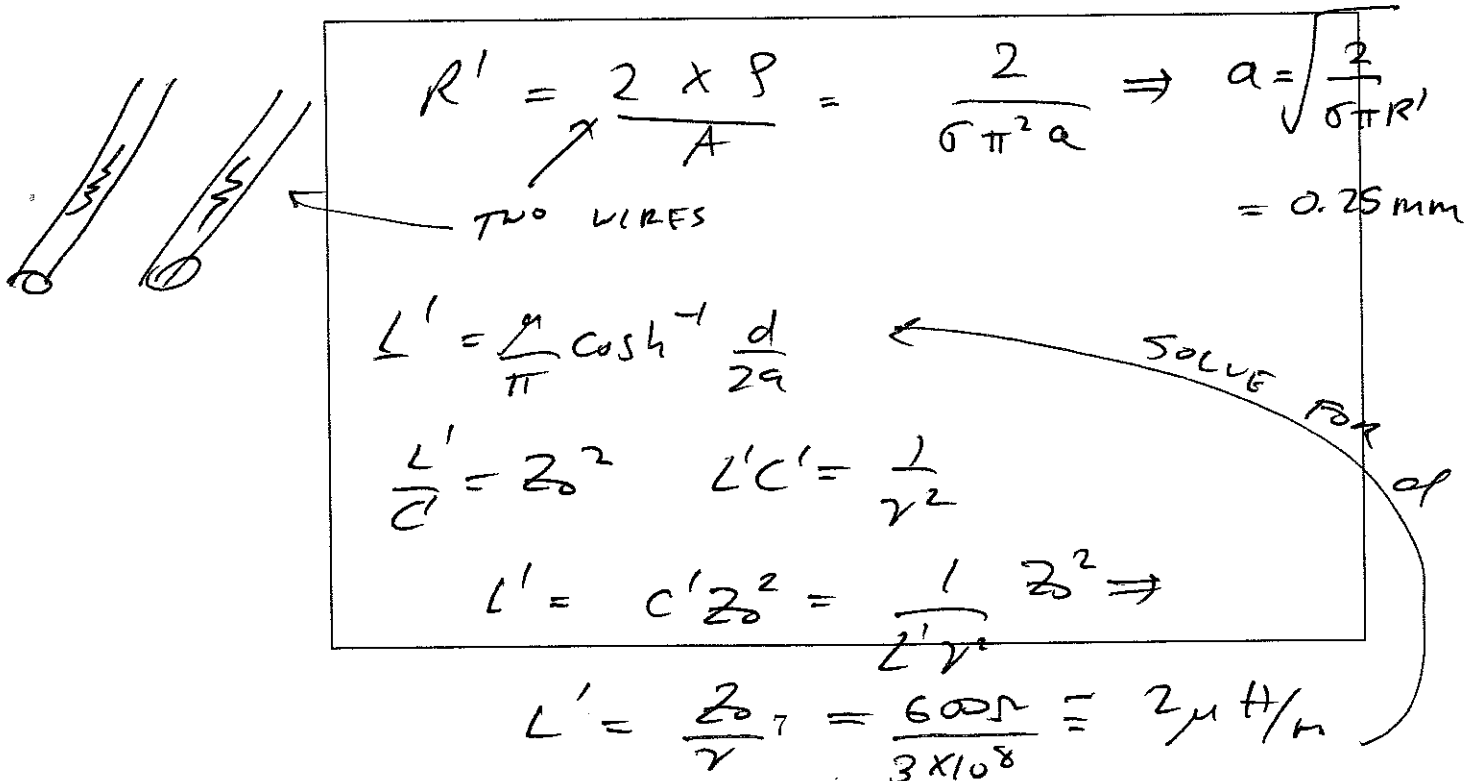 R' = 2 × ρ / A = 2 / σπ²a ⇒ a = √(2 / σπR')
= 0.25 mm
TWO WIRES
L' = μ/π cosh⁻¹ d/2a
SOLVE FOR d
L'/C' = Z₀² L'C' = 1/v²
L' = C'Z₀² = 1/L'v² Z₀² ⇒
L' = Z₀/v = 600Ω / 3×10⁸ = 2μH/m
7